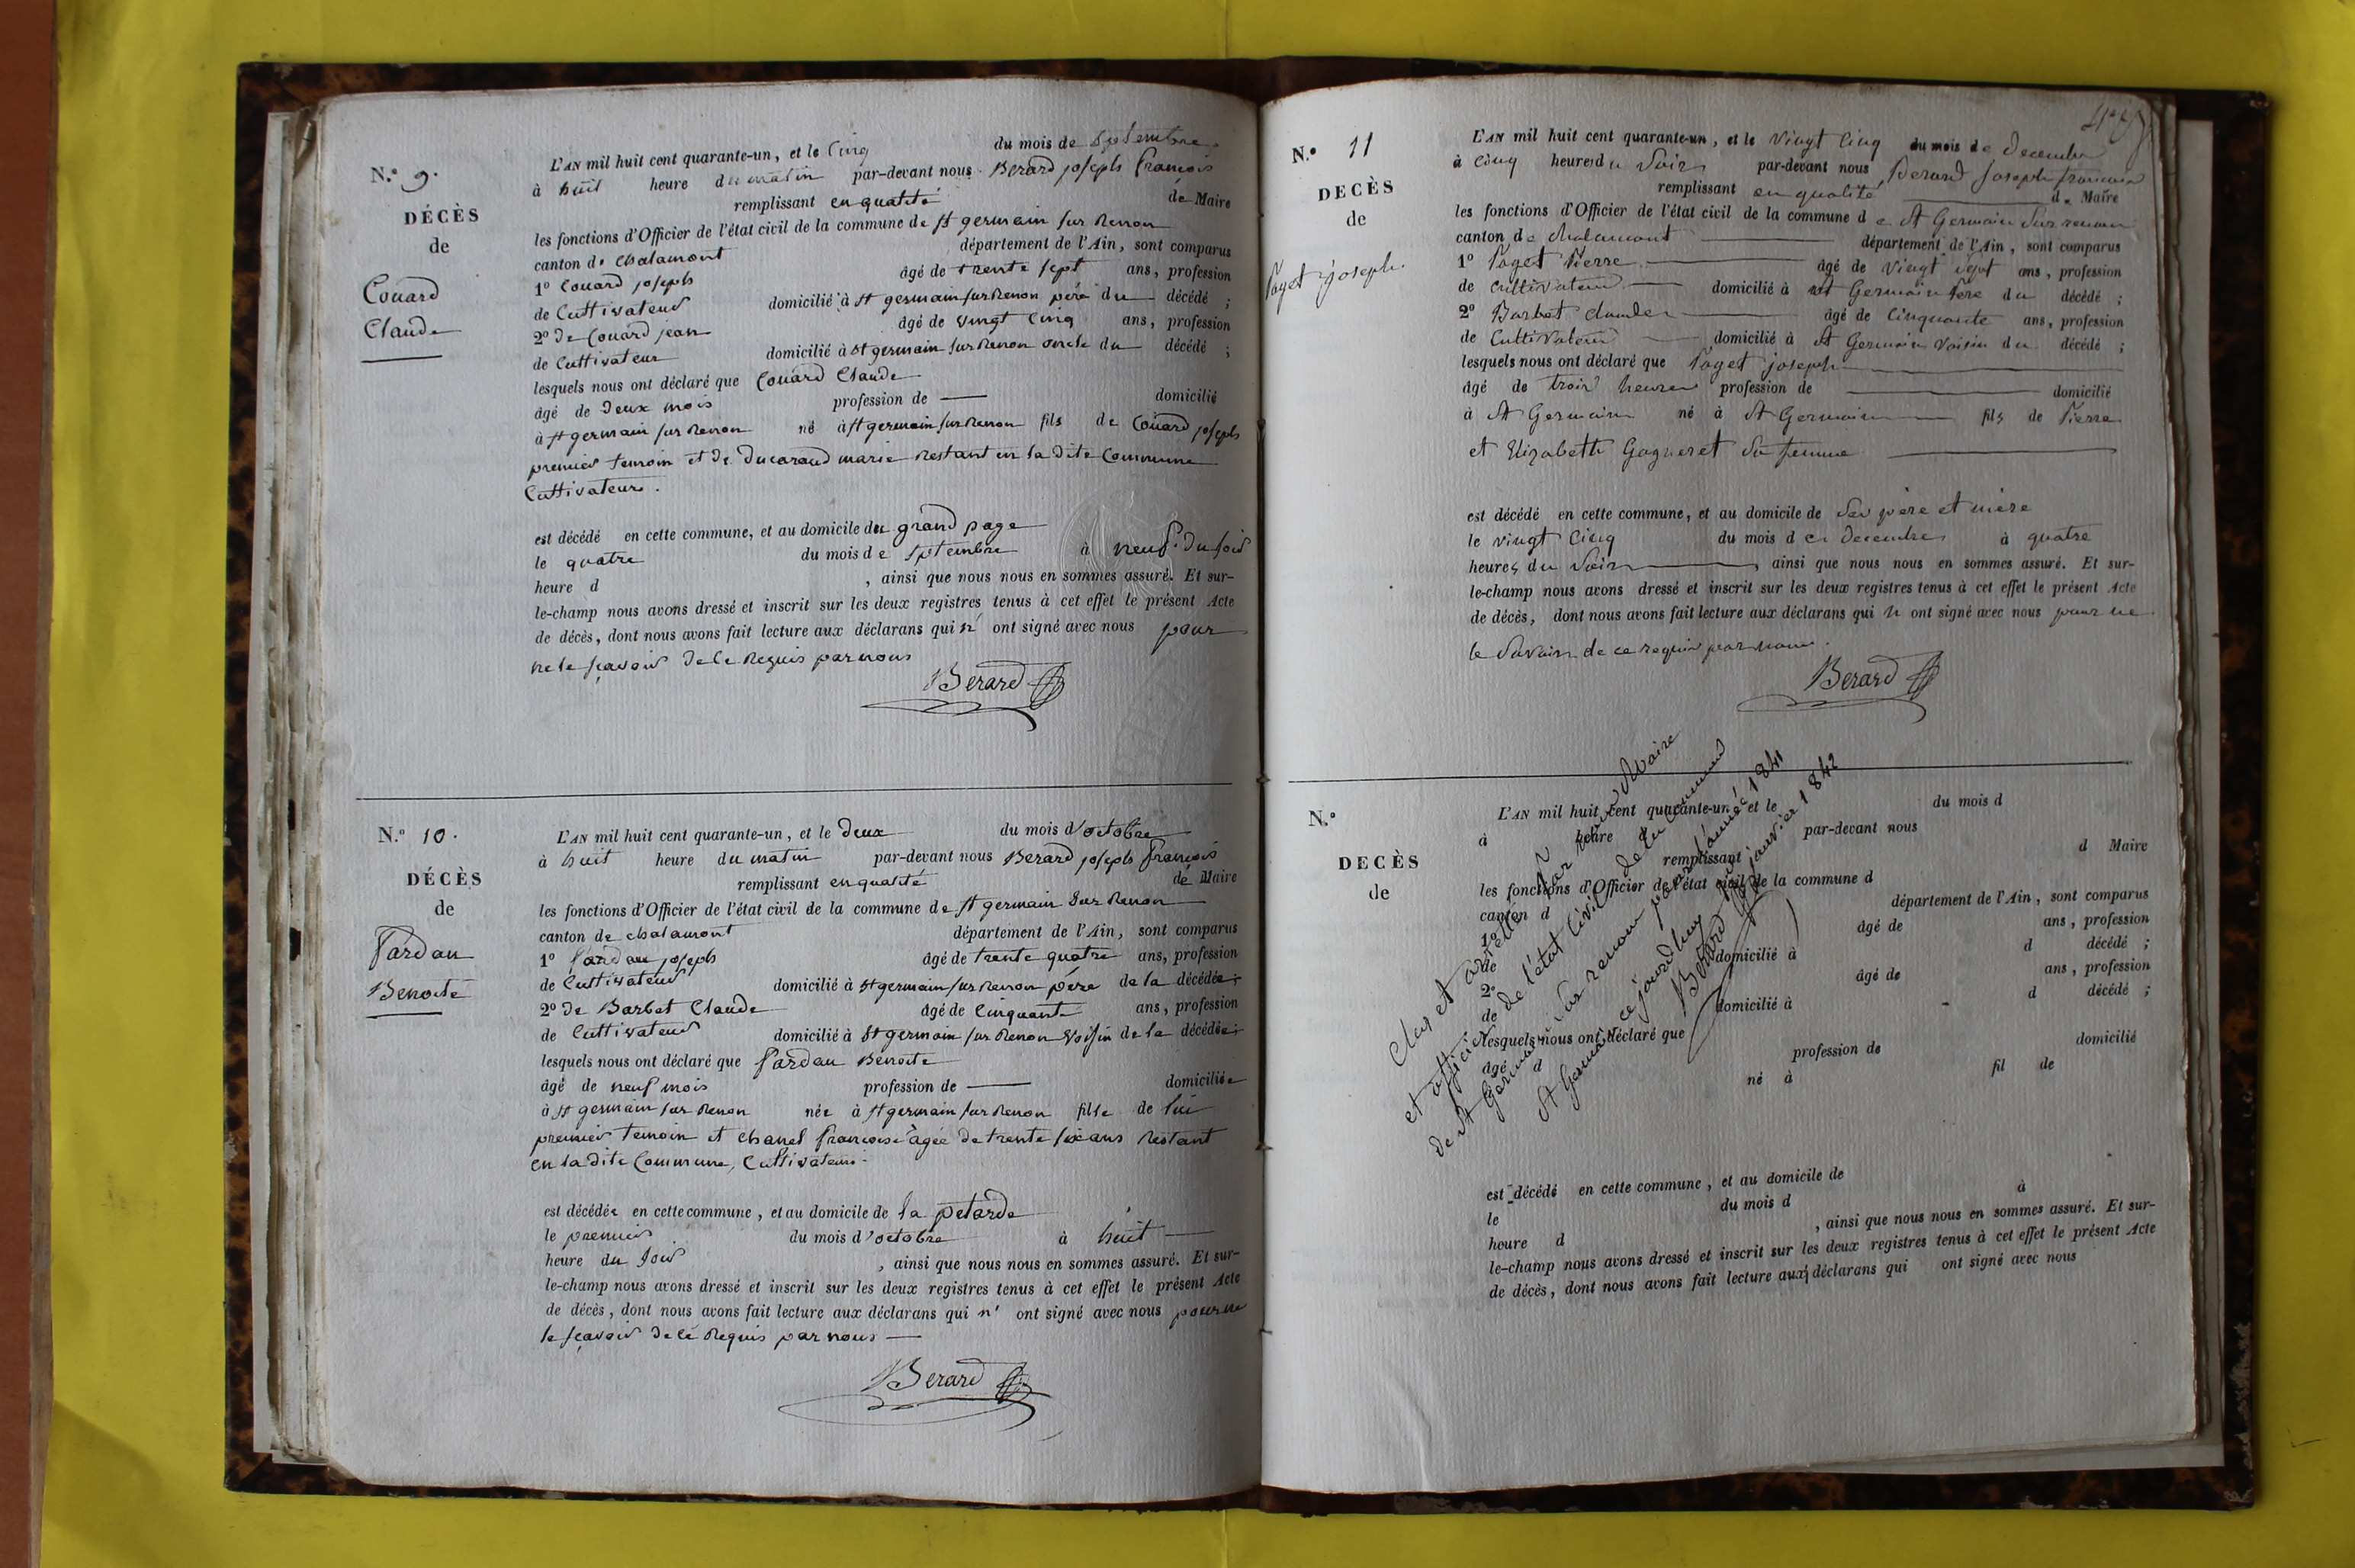 N.º 9.
DÉCÈS
de
Couard
Claude
L'AN mil huit cent quarante-un, et le Cinq du mois de Septembre
à huit heure du matin par-devant nous Berard joseph françois
remplissant en qualité de Maire
les fonctions d'Officier de l'état civil de la commune de st germain sur Renon
canton de chalamont département de l'Ain, sont comparus
1º Couard joseph âgé de trente sept ans, profession
de Cultivateur domicilié à st germain sur Renon père du décédé ;
2º de Couard jean âgé de vingt cinq ans, profession
de Cultivateur domicilié à st germain sur Renon oncle du décédé ;
lesquels nous ont déclaré que Couard Claude
âgé de deux mois profession de — domicilié
à st germain sur Renon né à st germain sur Renon fils de Couard joseph
premier temoin et de Ducaraud marie Restant en la dite Commune
Cultivateurs.
est décédé en cette commune, et au domicile du grand page
le quatre du mois de Septembre à neuf du soir
heure d , ainsi que nous nous en sommes assuré. Et sur-
le-champ nous avons dressé et inscrit sur les deux registres tenus à cet effet le présent Acte
de décès, dont nous avons fait lecture aux déclarans qui n' ont signé avec nous pour
ne le sçavoir de ce Requis par nous
Berard
N.º 10.
DÉCÈS
de
Pardau
Benoite
L'AN mil huit cent quarante-un, et le deux du mois d'octobre
à huit heure du matin par-devant nous Berard joseph françois
remplissant en qualité de Maire
les fonctions d'Officier de l'état civil de la commune de st germain sur Renon
canton de chalamont département de l'Ain, sont comparus
1º Pardau joseph âgé de trente quatre ans, profession
de Cultivateur domicilié à st germain sur Renon père de la décédée ;
2º de Barbet Claude âgé de Cinquante ans, profession
de Cultivateur domicilié à st germain sur Renon voisin de la décédée ;
lesquels nous ont déclaré que Pardau Benoite
âgé de neuf mois profession de — domiciliée
à st germain sur Renon née à st germain sur Renon fille de lui
premier temoin et chanel françoise âgée de trente six ans Restant
en la dite Commune, Cultivateurs.
est décédée en cette commune, et au domicile de la petarde
le premier du mois d'octobre à huit
heure du soir , ainsi que nous nous en sommes assuré. Et sur-
le-champ nous avons dressé et inscrit sur les deux registres tenus à cet effet le présent Acte
de décès, dont nous avons fait lecture aux déclarans qui n' ont signé avec nous pour ne
le sçavoir de ce Requis par nous —
Berard
N.º 11
DECÈS
de
Paget joseph.
L'AN mil huit cent quarante-un, et le vingt cinq du mois de decembre
à cinq heures du soir par-devant nous Berard Joseph francois
remplissant en qualité de Maire
les fonctions d'Officier de l'état civil de la commune de St Germain sur renom
canton de chalamont département de l'Ain, sont comparus
1º Paget Pierre âgé de vingt sept ans, profession
de cultivateur domicilié à st Germain Père du décédé ;
2º Barbet claude âgé de cinquante ans, profession
de Cultivateur domicilié à St Germain voisin du décédé ;
lesquels nous ont déclaré que Paget joseph
âgé de trois heures profession de domicilié
à St Germain né à St Germain fils de Pierre
et Elizabeth Gagneret sa femme
est décédé en cette commune, et au domicile de ses père et mère
le vingt cinq du mois de decembre à quatre
heures du soir , ainsi que nous nous en sommes assuré. Et sur-
le-champ nous avons dressé et inscrit sur les deux registres tenus à cet effet le présent Acte
de décès, dont nous avons fait lecture aux déclarans qui n ont signé avec nous pour ne
le savoir de ce requis par nous.
Berard
N.º
DECÈS
de
L'AN mil huit cent quarante-un, et le du mois d
à heure par-devant nous
remplissant d Maire
les fonctions d'Officier de l'état civil de la commune d
canton d département de l'Ain, sont comparus
1º âgé de ans, profession
de domicilié à d décédé ;
2º âgé de ans, profession
de domicilié à d décédé ;
lesquels nous ont déclaré que
âgé d profession de domicilié
né à fil de
est décédé en cette commune, et au domicile de
le du mois d à
heure d , ainsi que nous nous en sommes assuré. Et sur-
le-champ nous avons dressé et inscrit sur les deux registres tenus à cet effet le présent Acte
de décès, dont nous avons fait lecture aux déclarans qui ont signé avec nous
Clos et arrêté par nous Maire
et officier de l'état Civil de la Commune
de St Germain sur renom pour l'année 1841
St Germain ce jourd'huy janvier 1842
Berard